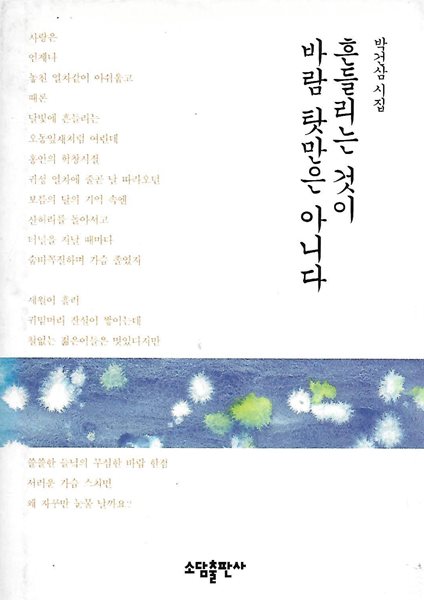 박건삼 시집
흔들리는 것이
바람 탓만은 아니다
사랑은
언제나
놓친 열차같이 아쉬웁고
때론
달빛에 흔들리는
오동잎새처럼 여린데
홍안의 학창시절
귀성 열차에 줄곧 날 따라오던
보름의 달의 기억 속엔
산허리를 돌아서고
터널을 지날 때마다
숨바꼭질하며 가슴 졸였지
세월이 흘러
귀밑머리 잔설이 쌓이는데
철없는 젊은이들은 멋있다지만
쓸쓸한 들녘의 무심한 바람 한점
서러운 가슴 스치면
왜 자꾸만 눈물 날까요?
소담출판사